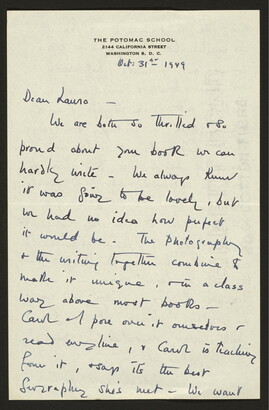 THE POTOMAC SCHOOL
2144 CALIFORNIA STREET
WASHINGTON 8, D. C.
Oct: 31st 1949
Dear Laura —
We are both so thrilled & so
proud about your book we can
hardly write — We always knew
it was going to be lovely, but
we had no idea how perfect
it would be — The Photography
& the writing together combine to
make it unique, & in a class
way above most books —
Carol & I pore over it ourselves &
read everyline, & Carol is teaching
from it, & says its the best
Geography she's met — We want